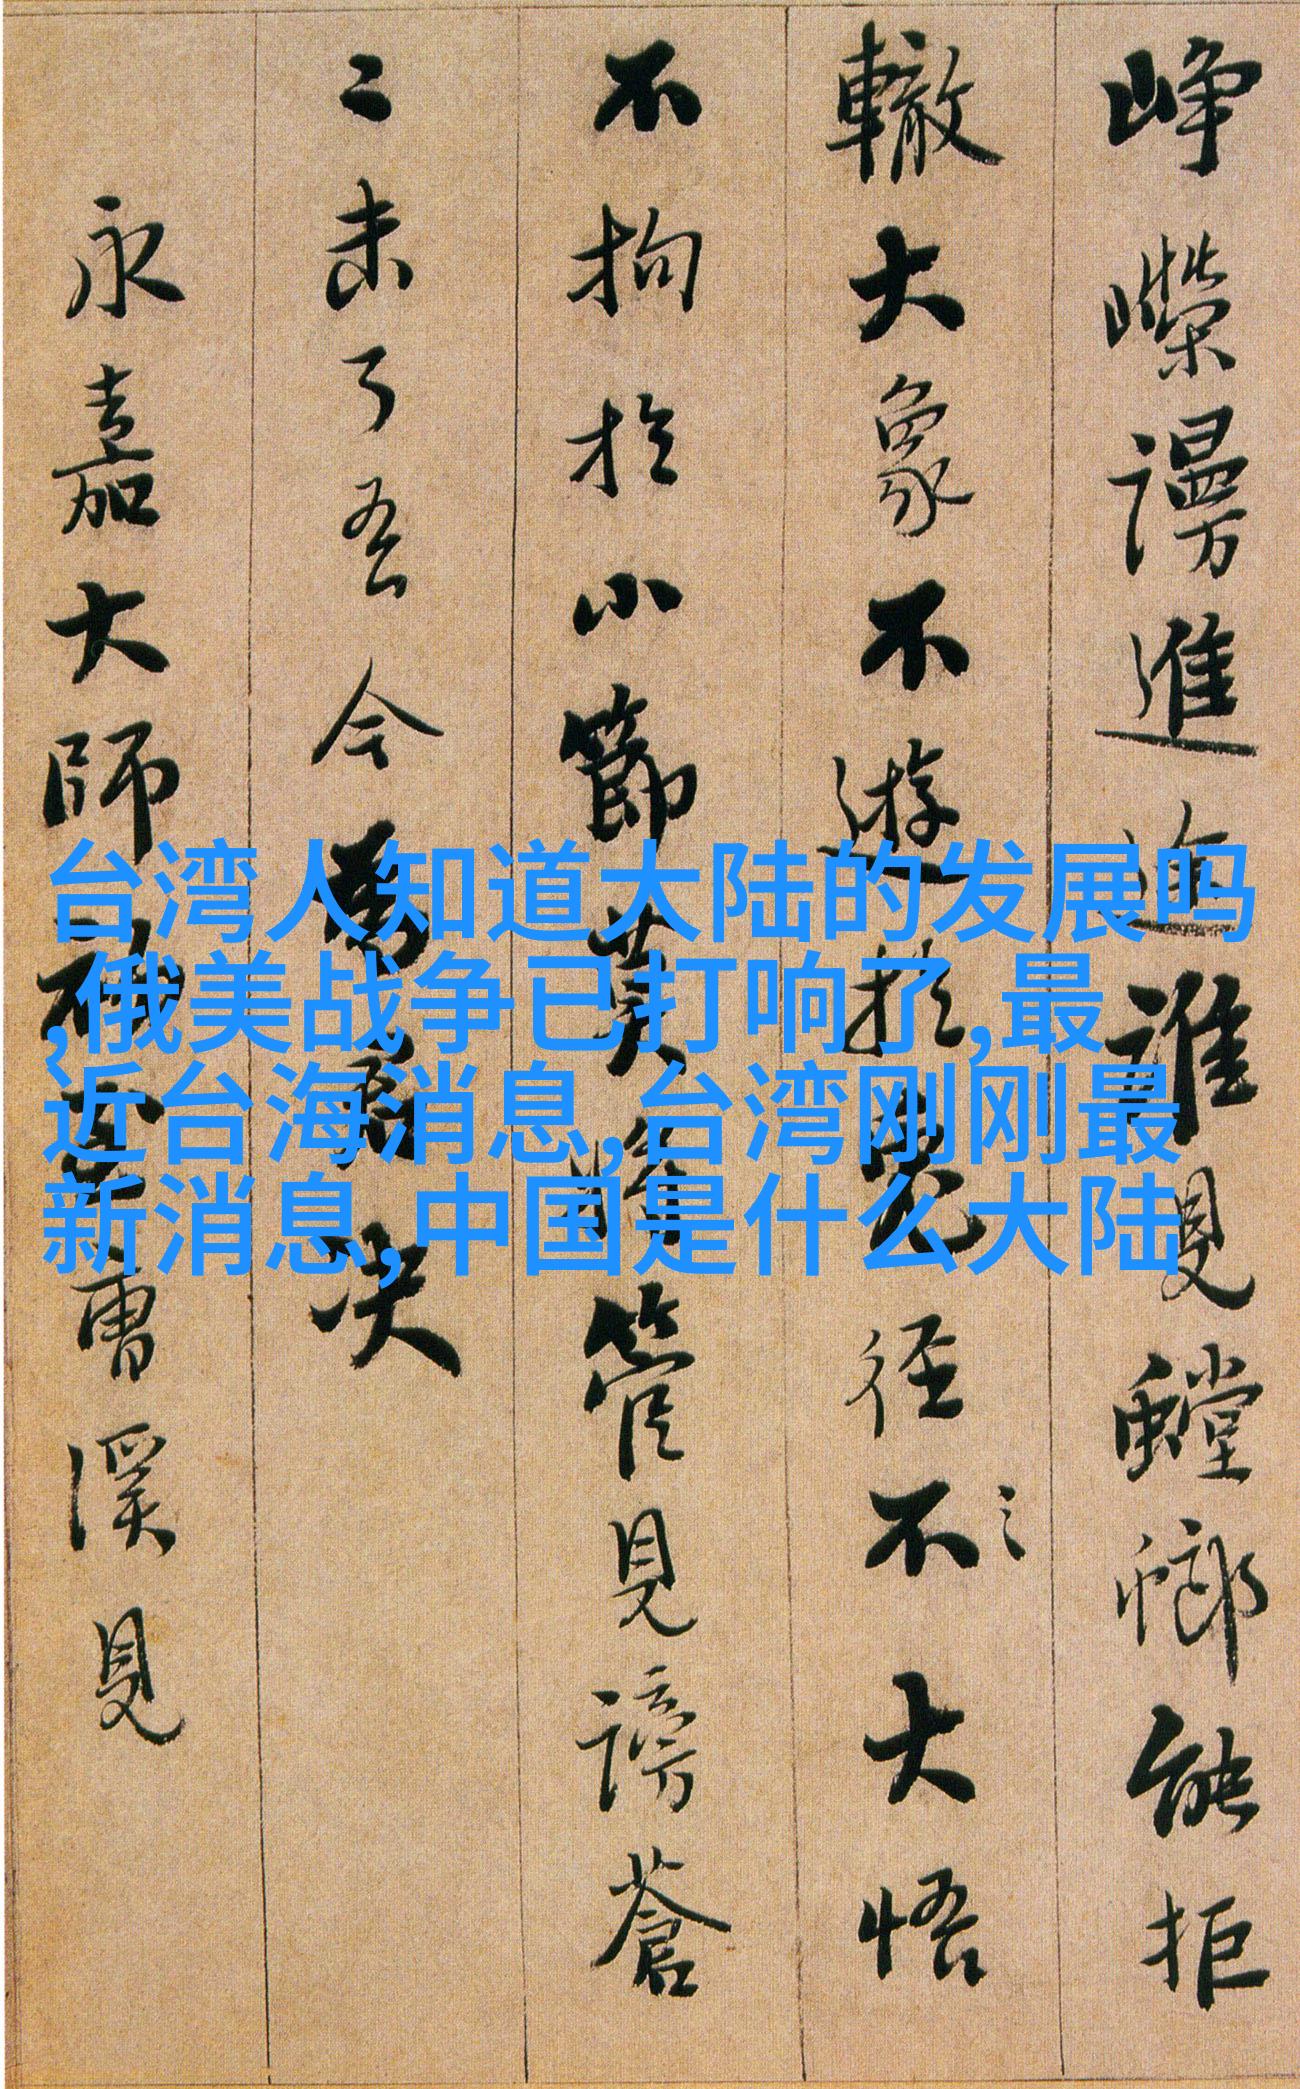 崢嶸謾進途誰見螳螂能拒
轍大象不遊於兔徑不大悟
不拘於小節莫將管見謗蒼
〻未了吾今為君決
永嘉大師曹溪見
台湾人知道大陆的发展吗
,俄美战争已打响了,最
近台海消息,台湾刚刚最
新消息,中国是什么大陆